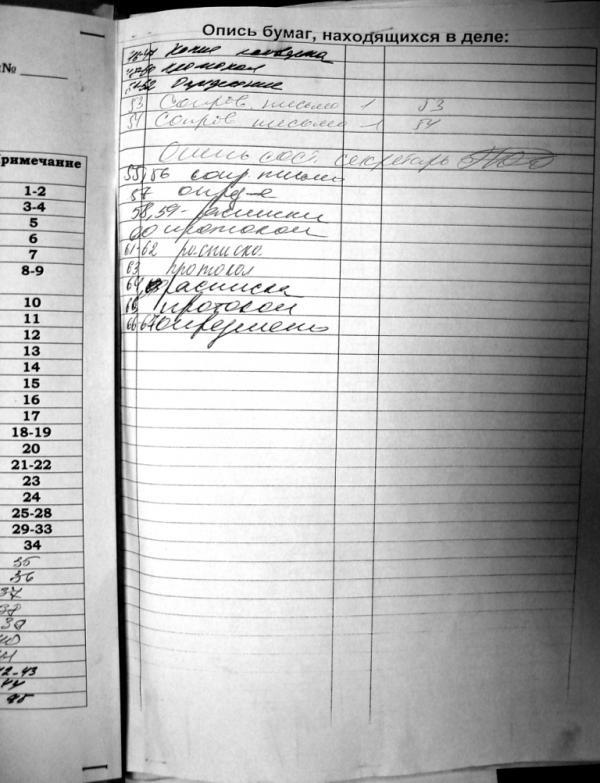 №
Примечание
1-2
3-4
5
6
7
8-9
10
11
12
13
14
15
16
17
18-19
20
21-22
23
24
25-28
29-33
34
35
36
37
38
39
40
41
42-43
44
45
Опись бумаг, находящихся в деле:
Копия
протокол
Определение
53 Сопров письмо 1 53
54 Сопров письмо 1 54
Опись сост. секретарь
55,56 сопр письмо
57 опред-е
58,59- расписки
60 протокол
61-62 расписка
63 протокол
64, расписка
65 протокол
66 67 определение